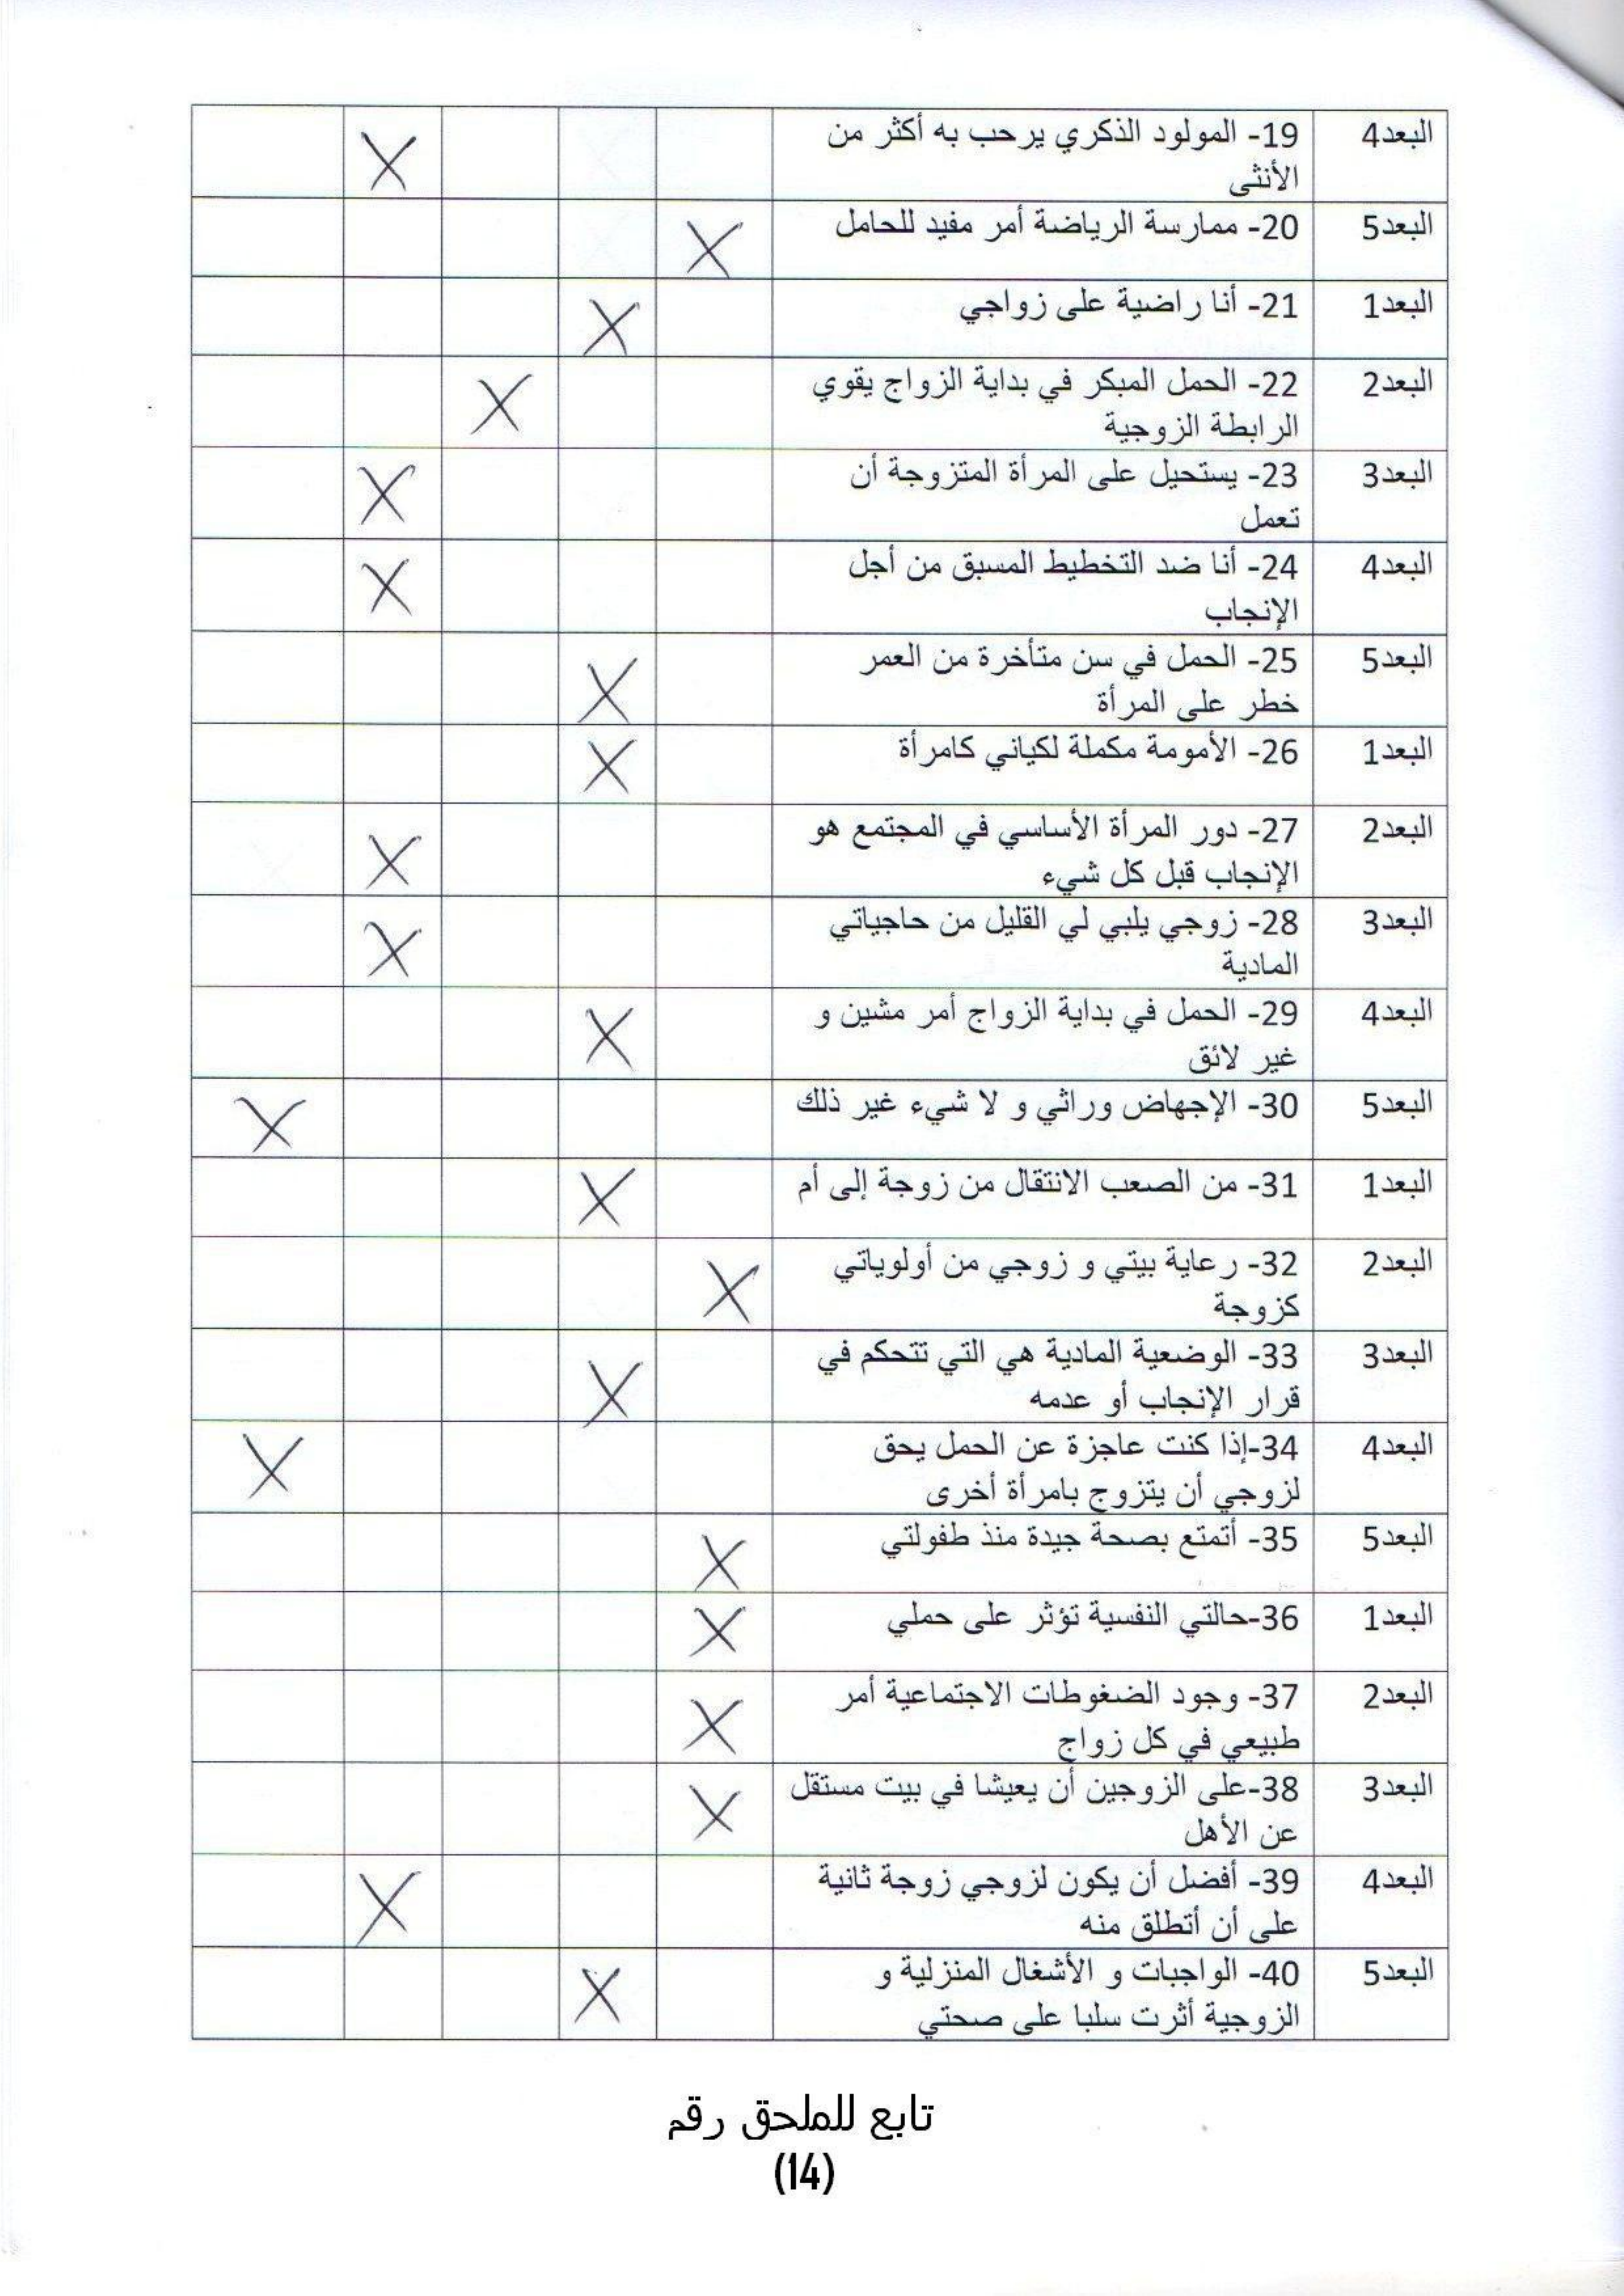 البعد4
19- المولود الذكري يرحب به أكثر من
الأنثى
البعد5
20- ممارسة الرياضة أمر مفيد للحامل
البعد1
21- أنا راضية على زواجي
البعد2
22- الحمل المبكر في بداية الزواج يقوي
الرابطة الزوجية
البعد3
23- يستحيل على المرأة المتزوجة أن
تعمل
البعد4
24- أنا ضد التخطيط المسبق من أجل
الإنجاب
البعد5
25- الحمل في سن متأخرة من العمر
خطر على المرأة
البعد1
26- الأمومة مكملة لكياني كامرأة
البعد2
27- دور المرأة الأساسي في المجتمع هو
الإنجاب قبل كل شيء
البعد3
28- زوجي يلبي لي القليل من حاجياتي
المادية
البعد4
29- الحمل في بداية الزواج أمر مشين و
غير لائق
البعد5
30- الإجهاض وراثي و لا شيء غير ذلك
البعد1
31- من الصعب الانتقال من زوجة إلى أم
البعد2
32- رعاية بيتي و زوجي من أولوياتي
كزوجة
البعد3
33- الوضعية المادية هي التي تتحكم في
قرار الإنجاب أو عدمه
البعد4
34-إذا كنت عاجزة عن الحمل يحق
لزوجي أن يتزوج بامرأة أخرى
البعد5
35- أتمتع بصحة جيدة منذ طفولتي
البعد1
36-حالتي النفسية تؤثر على حملي
البعد2
37- وجود الضغوطات الاجتماعية أمر
طبيعي في كل زواج
البعد3
38-على الزوجين أن يعيشا في بيت مستقل
عن الأهل
البعد4
39- أفضل أن يكون لزوجي زوجة ثانية
على أن أتطلق منه
البعد5
40- الواجبات و الأشغال المنزلية و
الزوجية أثرت سلبا على صحتي
تابع للملحق رقم
(14)